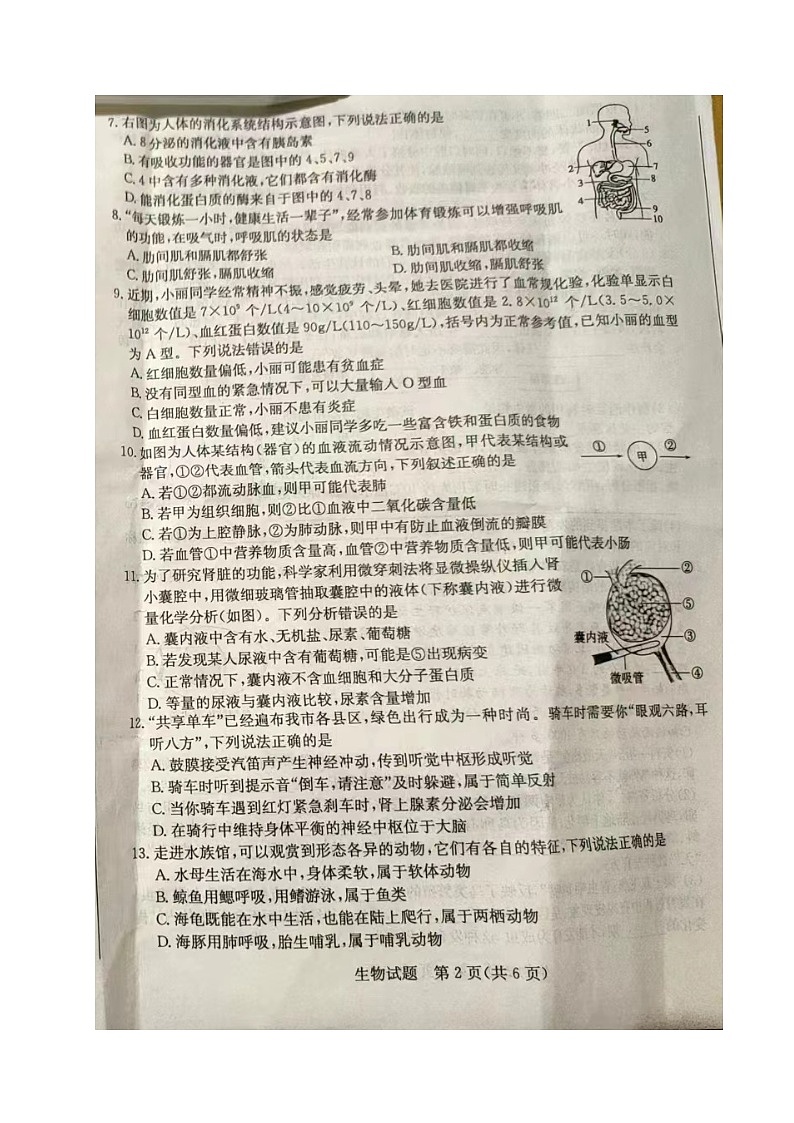 7. 右图为人体的消化系统结构示意图,下列说法正确的是
A. 8分泌的消化液中含有胰岛素
B. 有吸收功能的器官是图中的4、5、7、9
C. 4中含有多种消化液,它们都含有消化酶
D. 能消化蛋白质的酶来自于图中的4、7、8
1
5
6
2
7
3
8
4
9
10
8. “每天锻炼一小时,健康生活一辈子”,经常参加体育锻炼可以增强呼吸肌
的功能,在吸气时,呼吸肌的状态是
A. 肋间肌和膈肌都舒张 B. 肋间肌和膈肌都收缩
C. 肋间肌舒张,膈肌收缩 D. 肋间肌收缩,膈肌舒张
9. 近期,小丽同学经常精神不振,感觉疲劳、头晕,她去医院进行了血常规化验,化验单显示白
细胞数值是7×10⁹ 个/L(4~10×10⁹ 个/L)、红细胞数值是2.8×10¹² 个/L(3.5~5.0×
10¹² 个/L)、血红蛋白数值是90g/L(110~150g/L),括号内为正常参考值,已知小丽的血型
为A型。下列说法错误的是
A. 红细胞数量偏低,小丽可能患有贫血症
B. 没有同型血的紧急情况下,可以大量输入O型血
C. 白细胞数量正常,小丽不患有炎症
D. 血红蛋白数量偏低,建议小丽同学多吃一些富含铁和蛋白质的食物
10. 如图为人体某结构(器官)的血液流动情况示意图,甲代表某结构或
器官,①②代表血管,箭头代表血流方向,下列叙述正确的是
① 甲 ②
A. 若①②都流动脉血,则甲可能代表肺
B. 若甲为组织细胞,则②比①血液中二氧化碳含量低
C. 若①为上腔静脉,②为肺动脉,则甲中有防止血液倒流的瓣膜
D. 若血管①中营养物质含量高,血管②中营养物质含量低,则甲可能代表小肠
11. 为了研究肾脏的功能,科学家利用微穿刺法将显微操纵仪插入肾
小囊腔中,用微细玻璃管抽取囊腔中的液体(下称囊内液)进行微
量化学分析(如图)。下列分析错误的是
A. 囊内液中含有水、无机盐、尿素、葡萄糖
B. 若发现某人尿液中含有葡萄糖,可能是⑤出现病变
C. 正常情况下,囊内液不含血细胞和大分子蛋白质
D. 等量的尿液与囊内液比较,尿素含量增加
①
②
⑤
③
囊内液
微吸管
④
12. “共享单车”已经遍布我市各县区,绿色出行成为一种时尚。骑车时需要你“眼观六路,耳
听八方”,下列说法正确的是
A. 鼓膜接受汽笛声产生神经冲动,传到听觉中枢形成听觉
B. 骑车时听到提示音“倒车,请注意”及时躲避,属于简单反射
C. 当你骑车遇到红灯紧急刹车时,肾上腺素分泌会增加
D. 在骑行中维持身体平衡的神经中枢位于大脑
13. 走进水族馆,可以观赏到形态各异的动物,它们有各自的特征,下列说法正确的是
A. 水母生活在海水中,身体柔软,属于软体动物
B. 鲸鱼用鳃呼吸,用鳍游泳,属于鱼类
C. 海龟既能在水中生活,也能在陆上爬行,属于两栖动物
D. 海豚用肺呼吸,胎生哺乳,属于哺乳动物
生物试题 第2页(共6页)